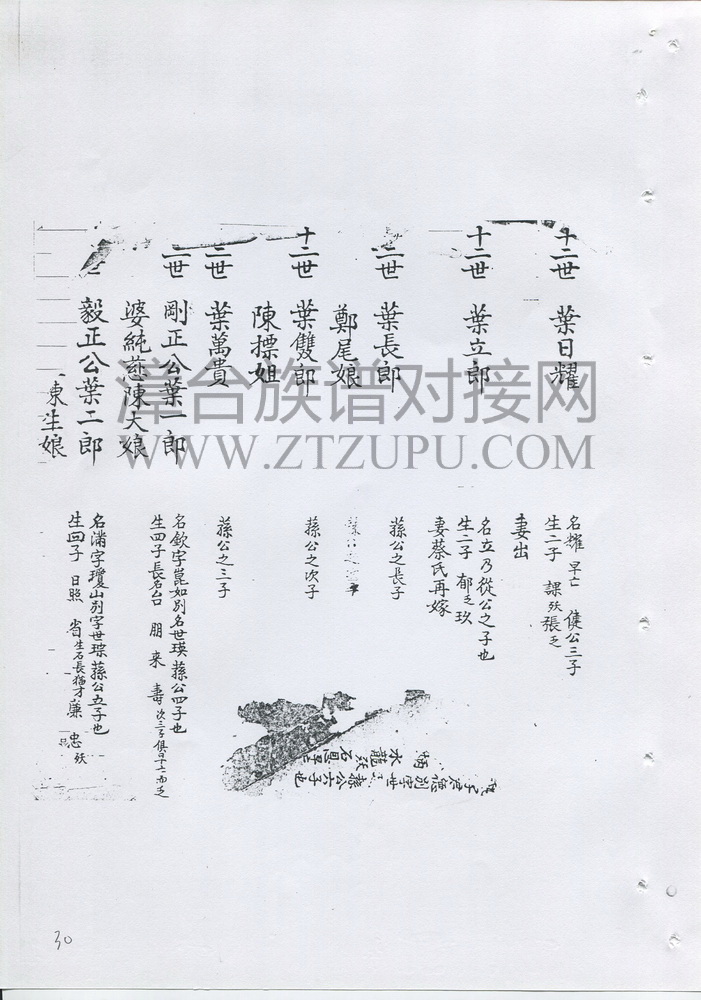 十二世 葉日耀
名耀 早亡 健公三子
生二子 課 張
妻出
十二世 葉立郎
名立乃從公之子也
生二子 郁 玖
妻蔡氏再嫁
二世 葉長郎
蓀公之長子
鄭尾娘
十二世 葉雙郎
蓀公之次子
陳摽姐
二世 葉萬貴
蓀公之三子
二世 剛正公葉一郎
名欽字崑如別名世瑛 蓀公四子也
生四子長名台 朋 來 壽
婆純慈陳大娘
毅正公葉二郎
名滿字瓊山別字世琮蓀公五子也
生四子 日照 省 廉 忠
陳生娘
水龍
蓀公六子也
漳台族谱对接网
WWW.ZTZUPU.COM
30